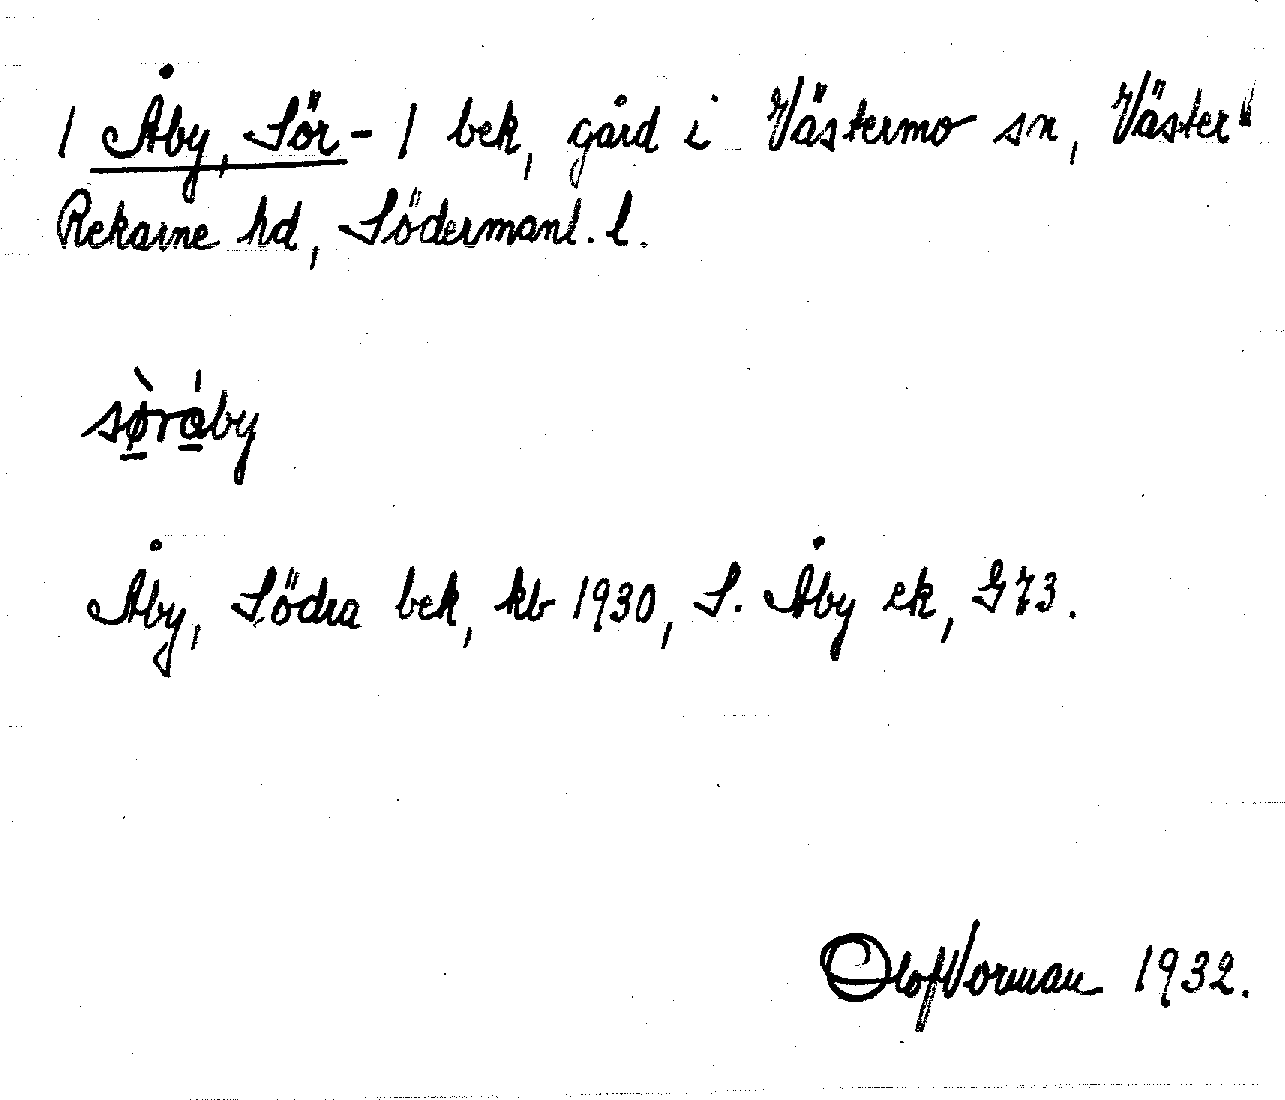 / Åby, Sör- / bek, gård i Västermo sn, Väster"
Rekarne hd, Södermanl. l.
sø̀råby
Åby, Södra bek, kb 1930, S. Åby ek, G73.
Olof Vorman 1932.